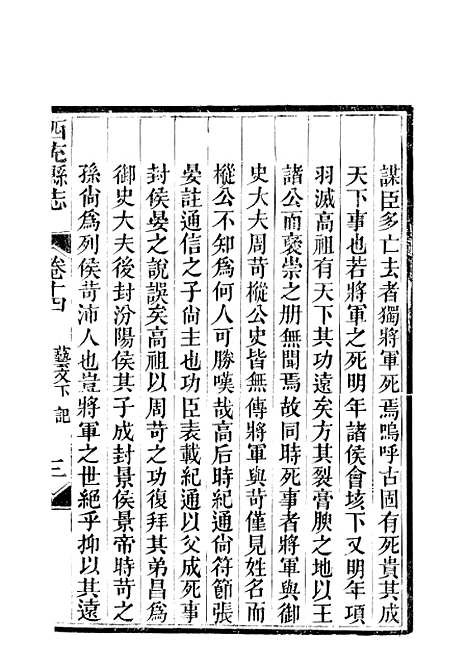 謀臣多亡去者獨將軍死焉嗚呼古固有死貴其成
天下事也若將軍之死明年諸侯會垓下又明年項
羽滅高祖有天下其功遠矣方其裂膏腴之地以王
諸公而褒崇之册無聞焉故同時死事者將軍與御
史大夫周苛樅公史皆無傳將軍與苛僅見姓名而
樅公不知為何人可勝嘆哉高后時紀通尚符節張
晏註通信之子尚主也功臣表載紀通以父成死事
封侯晏之說誤矣高祖以周苛之功復拜其弟昌為
御史大夫後封汾陽侯其子成封景侯景帝時苛之
孫尚為列侯苛沛人也豈將軍之世絕乎抑以其遠
西充縣志 卷十四 藝文下記 三